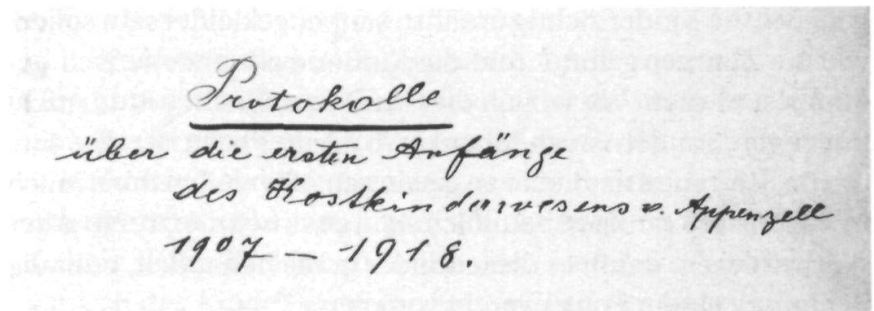 Protokolle
über die ersten Anfänge
des Kostkinderwesens v. Appenzell
1907 – 1918.